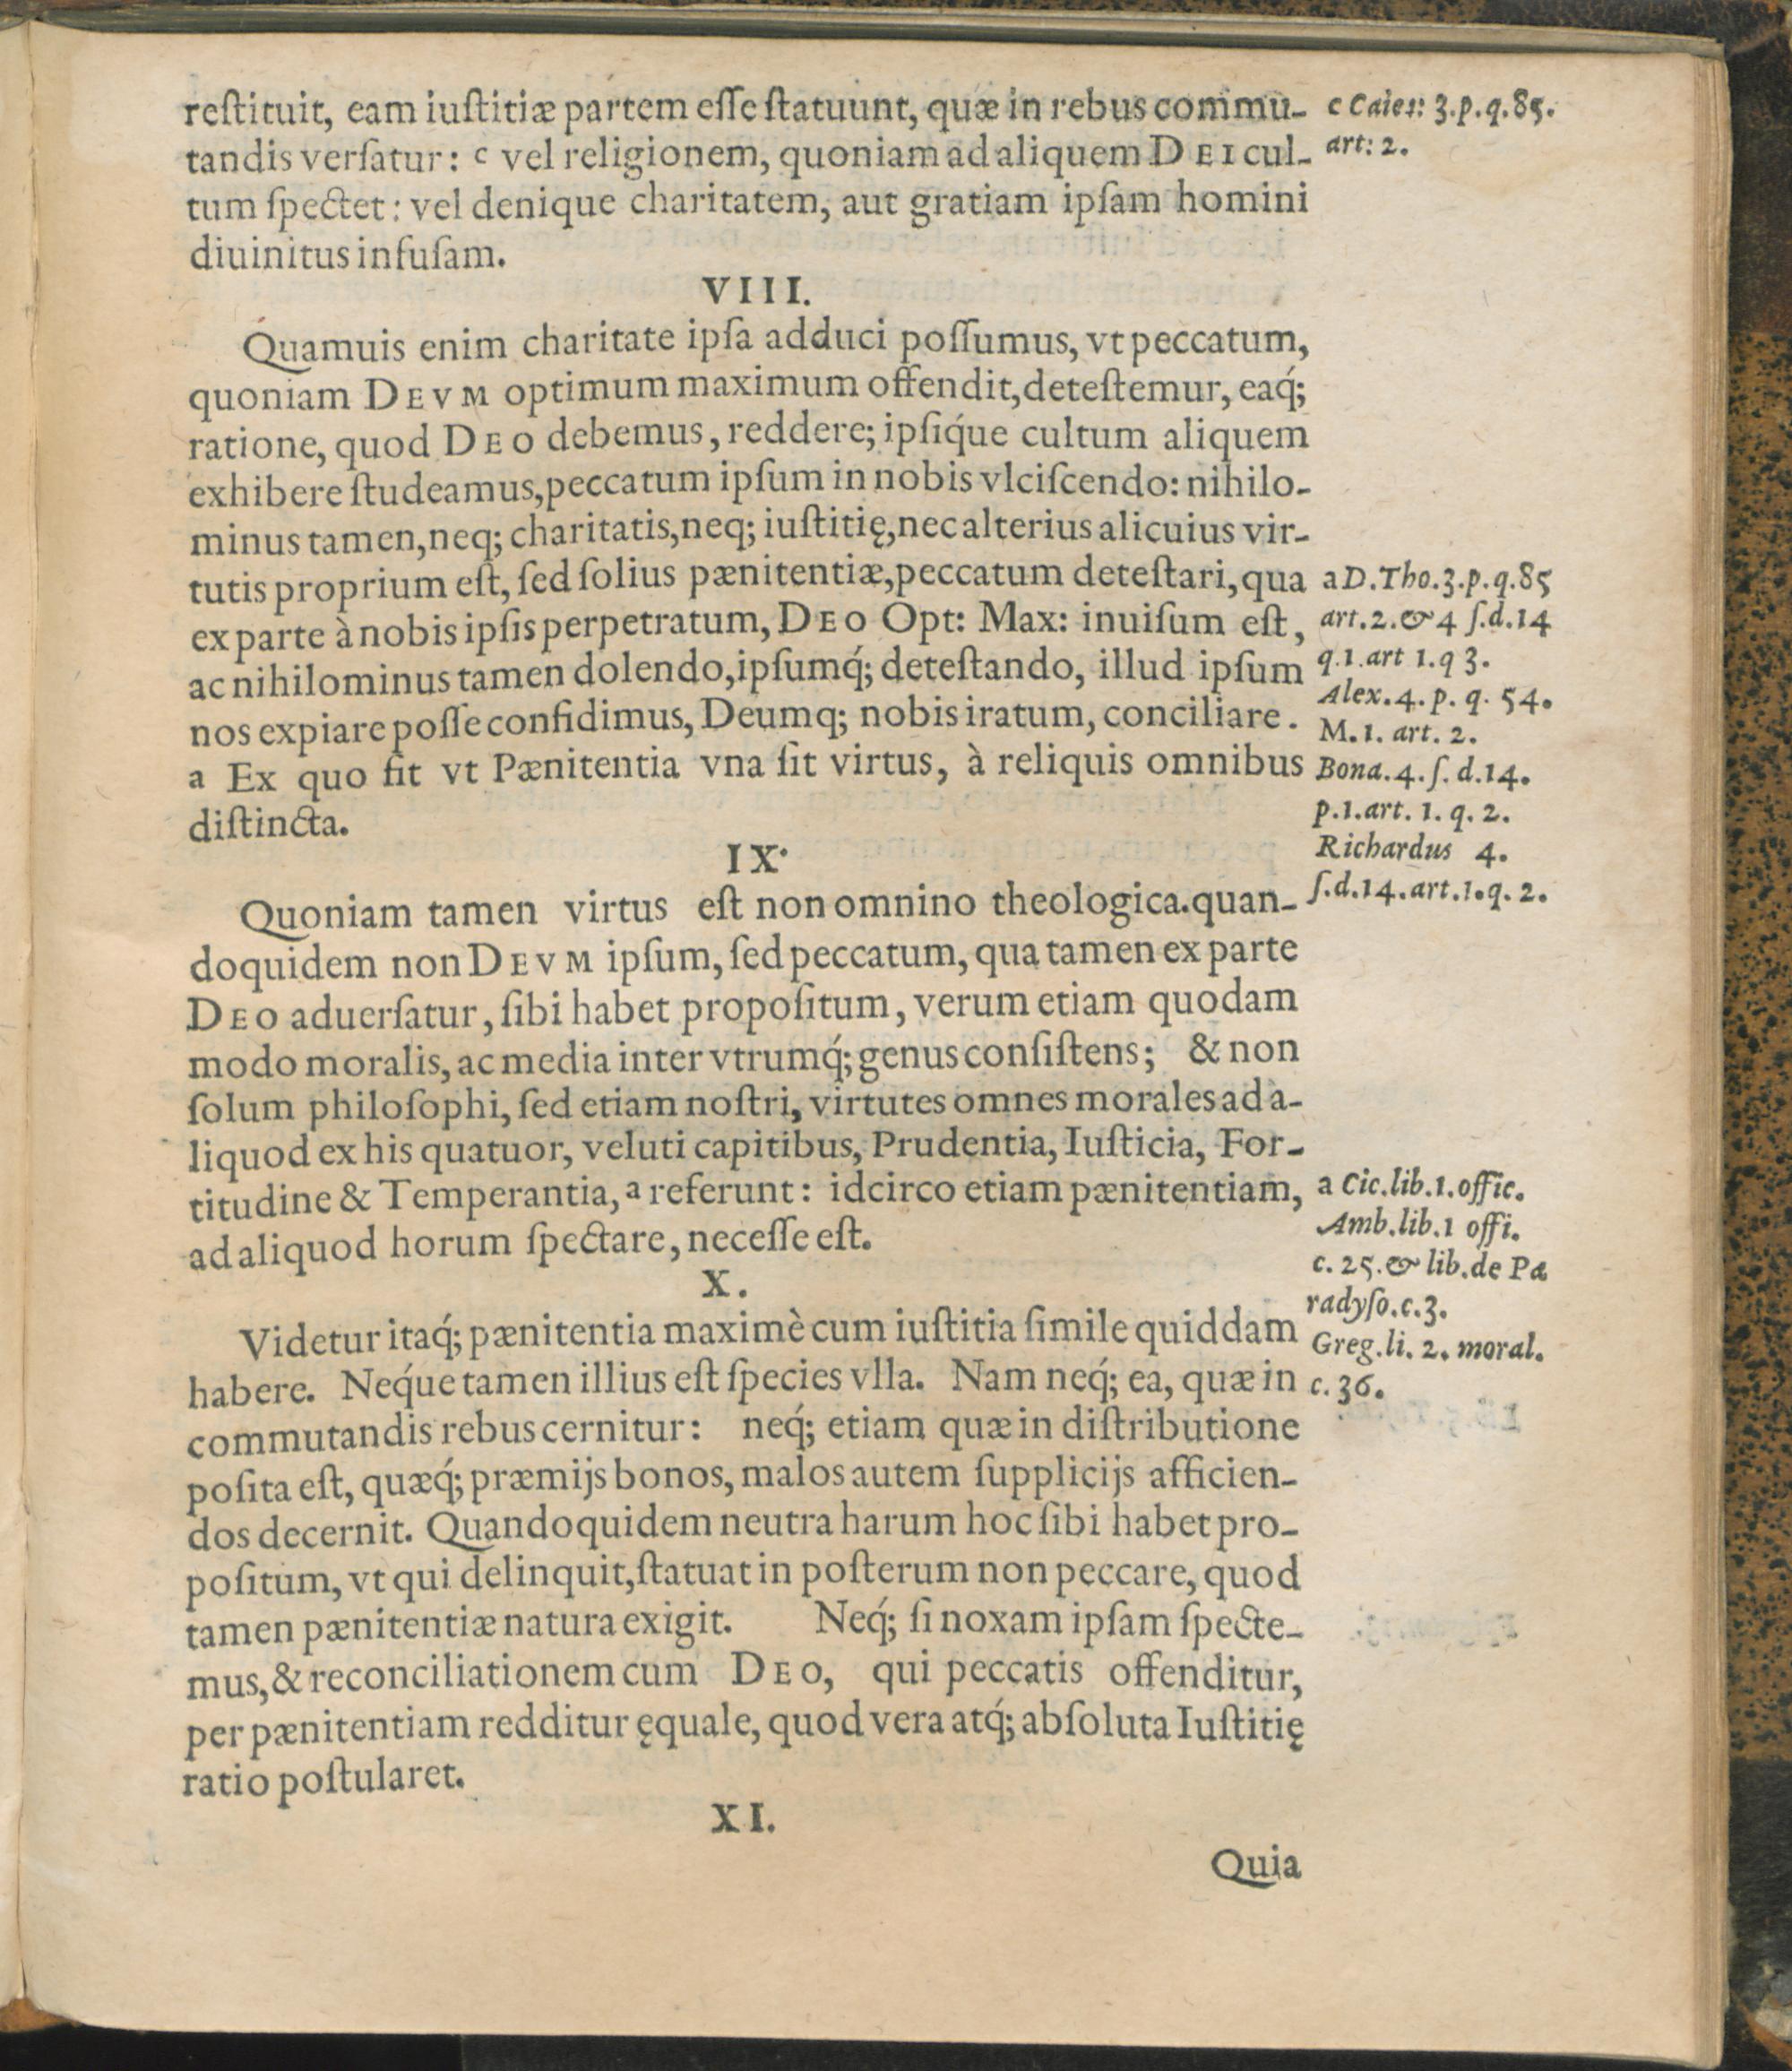 reſtituit, eam iuſtitiæ partem eſſe ſtatuunt, quæ in rebus commu-
tandis verſatur: c vel religionem, quoniam ad aliquem DEI cul-
tum ſpectet: vel denique charitatem, aut gratiam ipſam homini
diuinitus infuſam.
VIII.
Quamuis enim charitate ipſa adduci poſſumus, vt peccatum,
quoniam DEVM optimum maximum offendit, deteſtemur, eaq́;
ratione, quod DEO debemus, reddere; ipſiq́ue cultum aliquem
exhibere ſtudeamus, peccatum ipſum in nobis vlciſcendo: nihilo-
minus tamen, neq; charitatis, neq; iuſtitię, nec alterius alicuius vir-
tutis proprium eſt, ſed ſolius pænitentiæ, peccatum deteſtari, qua
ex parte à nobis ipſis perpetratum, DEO Opt: Max: inuiſum eſt,
ac nihilominus tamen dolendo, ipſumq́; deteſtando, illud ipſum
nos expiare poſſe confidimus, Deumq; nobis iratum, conciliare.
a Ex quo fit vt Pænitentia vna ſit virtus, à reliquis omnibus
diſtincta.
IX.
Quoniam tamen virtus eſt non omnino theologica. quan-
doquidem non DEVM ipſum, ſed peccatum, qua tamen ex parte
DEO aduerſatur, ſibi habet propoſitum, verum etiam quodam
modo moralis, ac media inter vtrumq́; genus conſiſtens; & non
ſolum philoſophi, ſed etiam noſtri, virtutes omnes morales ad a-
liquod ex his quatuor, veluti capitibus, Prudentia, Iuſticia, For-
titudine & Temperantia, a referunt: idcirco etiam pænitentiam,
ad aliquod horum ſpectare, neceſſe eſt.
X.
Videtur itaq́; pænitentia maximè cum iuſtitia ſimile quiddam
habere. Neq́ue tamen illius eſt ſpecies vlla. Nam neq́; ea, quæ in
commutandis rebus cernitur: neq́; etiam quæ in diſtributione
poſita eſt, quæq́; præmijs bonos, malos autem ſupplicijs afficien-
dos decernit. Quandoquidem neutra harum hoc ſibi habet pro-
poſitum, vt qui delinquit, ſtatuat in poſterum non peccare, quod
tamen pænitentiæ natura exigit. Neq́; ſi noxam ipſam ſpecte-
mus, & reconciliationem cum DEO, qui peccatis offenditur,
per pænitentiam redditur ęquale, quod vera atq́; abſoluta Iuſtitię
ratio poſtularet.
XI.
Quia
c Caiet: 3.p.q.85.
art: 2.
a D.Tho.3.p.q.85
art.2.& 4 ſ.d.14
q.1.art 1.q 3.
Alex.4.p.q.54.
M.1. art. 2.
Bona.4.ſ.d.14.
p.1.art. 1. q. 2.
Richardus 4.
ſ.d.14.art.1.q.2.
a Cic.lib.1.offic.
Amb.lib.1 offi.
c. 25.& lib.de Pa
radyſo.c.3.
Greg.li. 2. moral.
c. 36.